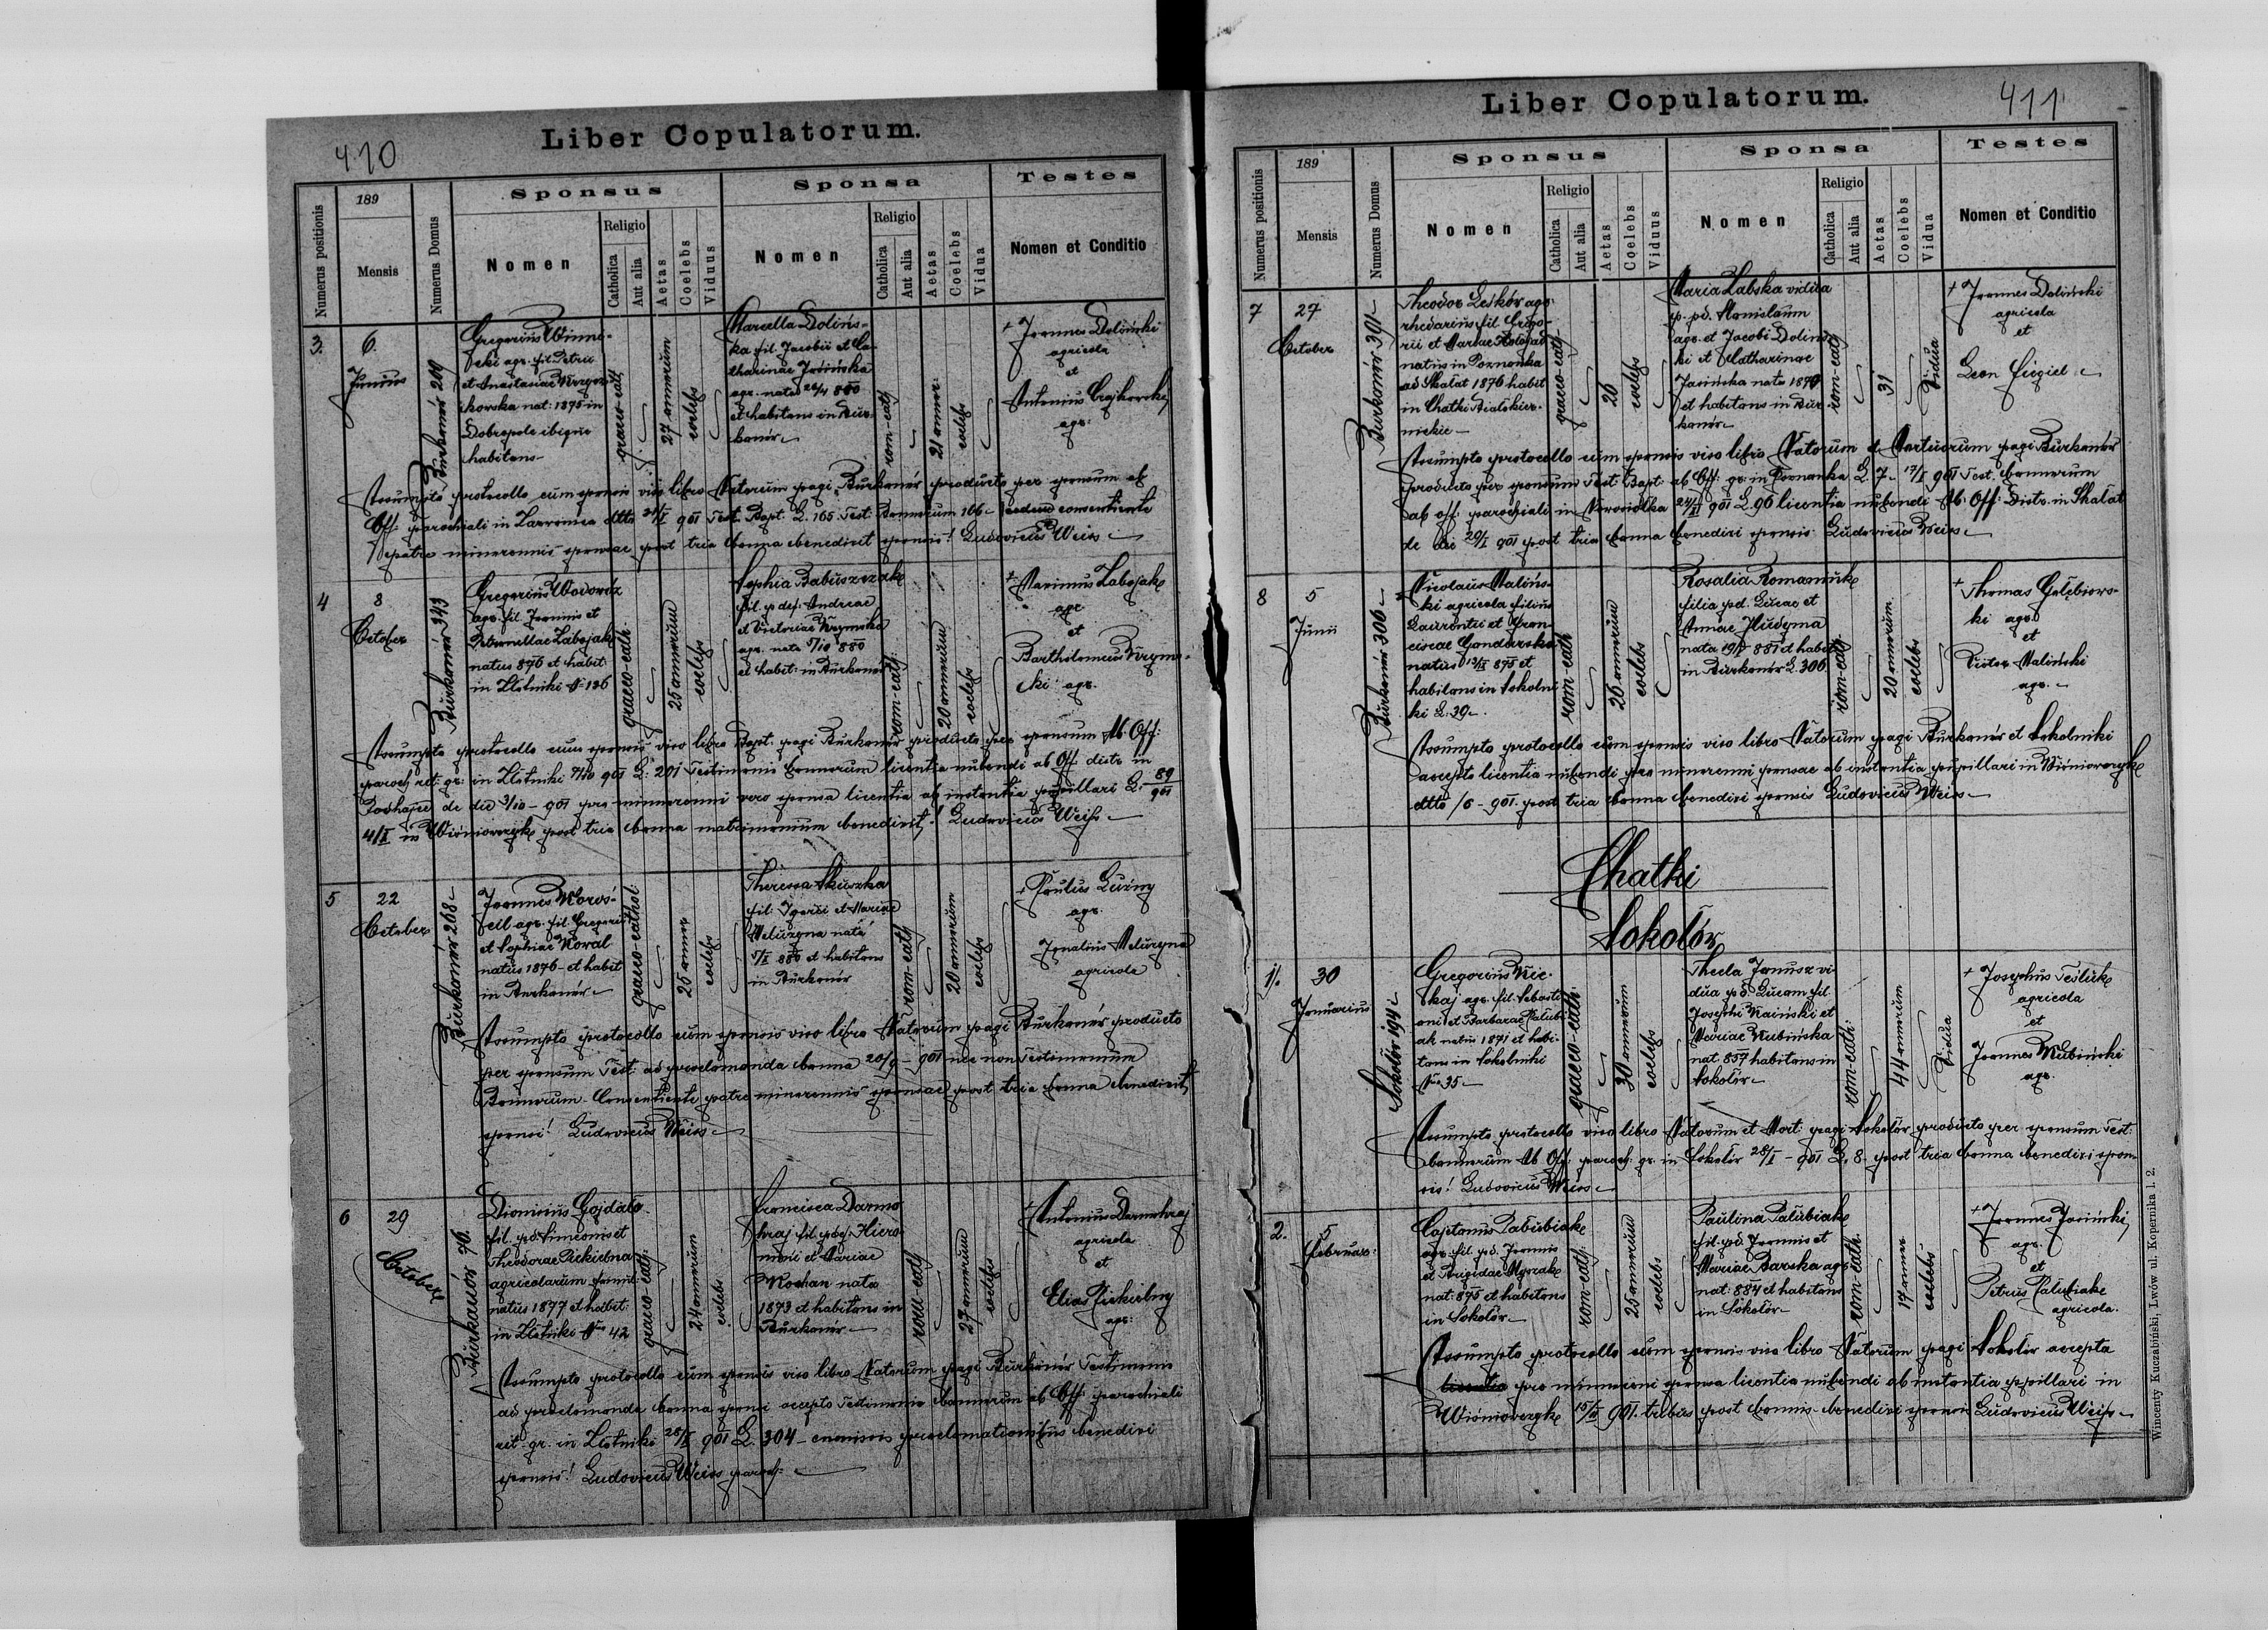 410
Liber Copulatorum.
Numerus positionis
189
Mensis
Numerus Domus
Sponsus
Nomen
Religio
Catholica
Aut alia
Aetas
Coelebs
Viduus
Sponsa
Nomen
Religio
Catholica
Aut alia
Aetas
Coelebs
Vidua
Testes
Nomen et Conditio
3.
6.
Junius
Burkanów 209
Gregorius Winni-
cki agr. fil. Petri
et Anastasiae
nat: 1875 in
Dobropole ibique
habitans
graeco-cath
27 annorum
coelebs
Marcella Dolińs-
ka fil. Jacobi et Ca-
tharinae Jasińska
agr. nata 880
et habitans in Bur-
kanów
rom-cath
21 annor.
coelebs
+ Joannes Doliński
agricola
et
Antonius Czajkowski
agr.
Assumpto protocollo cum sponsis viso libro Natorum pagi Burkanów producto per sponsum ab
Off. parochiali in dtto 901 Test. Bapt. L. 165. Test. Bannorum 166 consentiente
patre minorennis sponsae post tria banna benedixit sponsis! Ludovicus Weiss
4
8
October
Burkanów 343
Gregorius Wodowoz
agr. fil. Joannis et
Petronellae Zabojak
natus 876 et habit:
in Złotniki N 136
graeco-cath.
25 annorum
coelebs
Sophia Babuszczak
fil. p. def. Andreae
et Victoriae Krymska
agr. nata 880
et habit: in Burkanów
rom-cath.
20 annorum
coelebs
+ Maximus Zabojak
agr
et
Bartholomeus Kryms-
ki agr.
Assumpto protocollo cum sponsis viso libro Bapt: pagi Burkanów producto per sponsum Ab Off:
paroch rit: gr: in Złotniki 901 L: 201 Testimonio bannorum licentia nubendi ab Off. distr. in
Podhajce de die 3/10 - 901 pro minorenni vero sponsa licentia ab instantia pupillari L. 89/901
in Wiśniowczyk post tria banna matrimonium benedixit! Ludovicus Weiss
5
22
October
Burkanów 268
Joannes
agr. fil. Gregorii
et Sophiae Koval
natus 1876 et habit
in Burkanów
graeco-cathol.
25 annor
coelebs
Theressa Skuszka
fil: Ignatii et Mariae
Meluzyna nata
880 et habitans
in Burkanów
rom-cath
20 annorum
coelebs
+ Paulus Luzny
agr.
Ignatius Meluzyna
agricola
Assumpto protocollo cum sponsis viso libro Natorum pagi Burkanów producto
per sponsum Test: ad proclamanda banna 20/9 - 901 nec non Testimonium
Bannorum. Consentiente patre minorennis sponsae post tria banna benedixit
sponsi! Ludovicus Weiss
6
29
October
Burkanów 96.
Dionisius Gojdało
fil. pd. Simeonis et
Theodorae Piekielna
agricolarum
natus 1877 et habit:
in Złotniki N 42
graeco-cath.
24 annorum
coelebs
Francisca Darmo
hraj fil. pdef. Hiero
nimi et Mariae
Kochan nata
1873 et habitans in
Burkanów
rom-cath
27 annorum
coelebs
+ Antonius Darmohraj
agricola
et
Elias Piekielny
agr:
Assumpto protocollo cum sponsis viso libro Natorum pagi Burkanów Testimonio
ad proclamanda banna sponsi accepto Testimonio bannorum ab Off: parochiali
rit. gr. in Złotniki 901 L. 304 proclamationibus benedixi
sponsis! Ludovicus Weiss paroch.
411
Liber Copulatorum.
Numerus positionis
189
Mensis
Numerus Domus
Sponsus
Nomen
Religio
Catholica
Aut alia
Aetas
Coelebs
Viduus
Sponsa
Nomen
Religio
Catholica
Aut alia
Aetas
Coelebs
Vidua
Testes
Nomen et Conditio
7
27
October
Burkanów 391
Theodor Leśków agr.
rhedarius fil. Grego-
rii et Mariae
natus in Poznanka
ad Skałat 1876 habit
in Chatki Białokier-
nickie
graeco-cath
26
coelebs
Maria Łabska vidua
p. pd. Stanislaum
agr. et Jacobi Doliń-
ki et Catharinae
Jasińska nata 1870
et habitans in Bur-
kanów
rom-cath
31
Vidua
+ Joannes Doliński
agricola
et
Leon Fiegiel
Assumpto protocollo cum sponsis viso libro Natorum et Mortuorum pagi Burkanów
producto per sponsum Test. Bapt. ab Off: gr. in Poznanka L. 7 901 Test. bannorum
ab off: parochiali in 901 L. 96 licentia nubendi Ab: Off: Distr. in Skałat
de die 901 post tria banna benedixi sponsis Ludovicus Weiss
8
5
Junii
Burkanów 306
Nicolaus Maliń-
ki agricola filius
Laurentii et Fran-
ciscae Gondarska
natus 875 et
habitans in Sokolni
ki L. 39
rom-cath
26 annorum
coelebs
Rosalia Romaniuk
filia pd. Lucae et
Annae Hudyma
nata 881 et habit
in Burkanów L. 306
rom-cath
20 annorum
coelebs
+ Thomas Gołębiows-
ki agr.
et
Victor Maliński
agr.
Assumpto protocollo cum sponsis viso libro Natorum pagi Burkanów et Sokolniki
accepta licentia nubendi pro minorenni sponsae ab instantia pupillari in Wiśniowczyk
dtto /6 - 901. post tria banna benedixi sponsis Ludovicus Weiss
Chatki
Sokołów
1/.
30
Januarius
Sokołów 194
Gregorius
agr. fil. Sebasti
ani et Barbarae Palubi
ak natus 1871 et habi-
tans in Sokolniki
N 35
graeco-cath.
30 annorum
coelebs
Thecla Janusz vi
dua pd. Lucam fil.
Josephi et
Mariae Kubińska
nat 857 habitans in
Sokołów
rom-cath:
44 annorum
Vidua
+ Josephus Tesluk
agricola
et
Joannes Kubiński
agr.
Assumpto protocollo viso libro Natorum et Mort: pagi Sokołów producto per sponsum Test:
bannorum Ab Off: paroch: gr. in Sokołów 28/I - 901 L. 8. post tria banna benedixi spon-
sis! Ludovicus Weiss
2.
5
Februar:
Cajetanus Palubiak
agr. fil. pd. Joannis
et Brigidae
nat. 875 et habitans
in Sokołów
rom-cath.
25 annorum
coelebs
Paulina Palubiak
fil. pd. Joannis et
Mariae Barska agr
nat: 884 et habitans
in Sokołów
rom-cath.
17 annor
coelebs
+ Joannes Jasiński
agr.
et
Petrus Palubiak
agricola.
Assumpto protocollo cum sponsis viso libro Natorum pagi Sokołów accepta
licentia pro minorenni sponsa licentia nubendi ab instantia pupillari in
Wiśniowczyk 901. tribus post bannis benedixi sponsis Ludovicus Weiss
Wincenty Kuczabiński, Lwów ul. Kopernika l. 2.